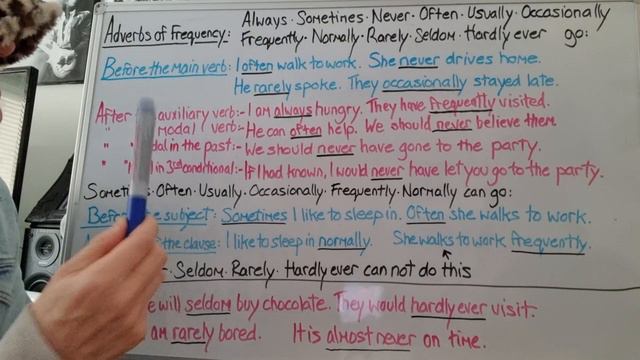 Always · Sometimes · Never · Often · Usually · Occasionally
Adverbs of Frequency: Frequently · Normally · Rarely · Seldom · Hardly ever go:
Before the main verb: I often walk to work. She never drives home.
He rarely spoke. They occasionally stayed late.
After auxiliary verb:- I am always hungry. They have frequently visited.
" modal verb:- He can often help. We should never believe them
" in the past:- We should never have gone to the party.
" " in 3rd conditional:- If I had known, I would never have let you go to the party.
Sometimes · Often · Usually · Occasionally · Frequently · Normally can go:
Before subject: Sometimes I like to sleep in. Often she walks to work.
the clause: I like to sleep in normally. She walks to work frequently.
· Seldom · Rarely · Hardly ever can not do this
will seldom buy chocolate. They would hardly ever visit.
am rarely bored. It is almost never on time.